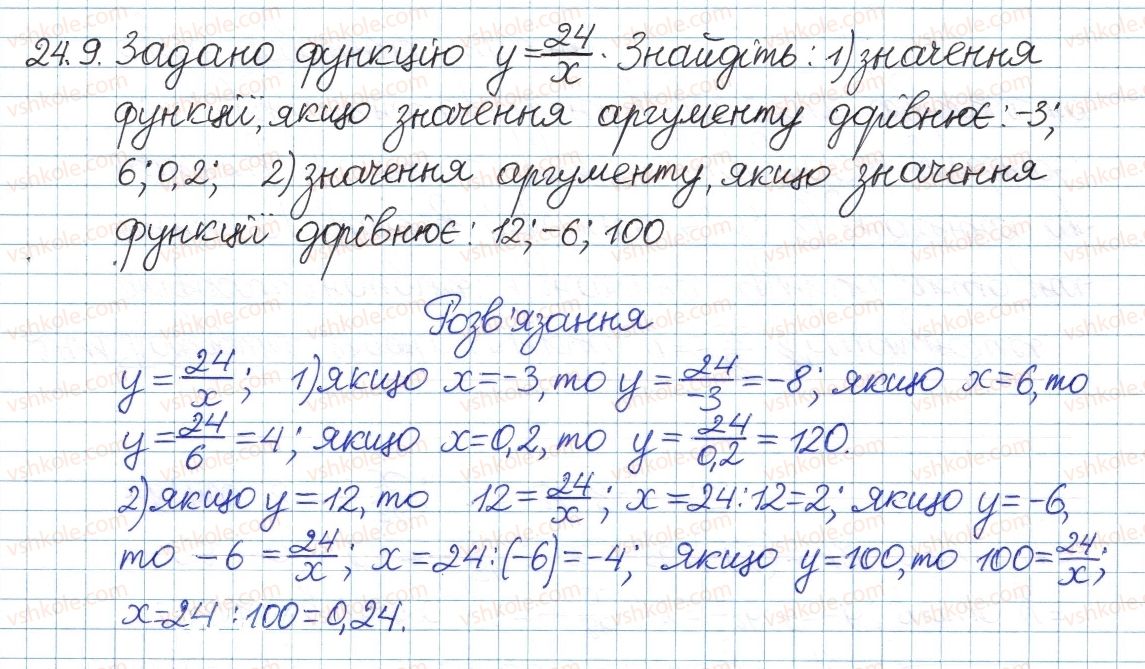 24.9. Задано функцію y=24/x. Знайдіть: 1) значення
функції, якщо значення аргументу дорівнює: -3;
6; 0,2; 2) значення аргументу, якщо значення
функції дорівнює: 12; -6; 100
Розв'язання
y = 24/x; 1) якщо x=-3, то y = 24/-3 = -8; якщо x=6, то
y = 24/6 = 4; якщо x=0,2, то y = 24/0,2 = 120.
2) якщо y=12, то 12 = 24/x; x=24:12=2; якщо y=-6,
то -6 = 24/x; x = 24:(-6)=-4; якщо y=100, то 100=24/x;
x=24:100=0,24.